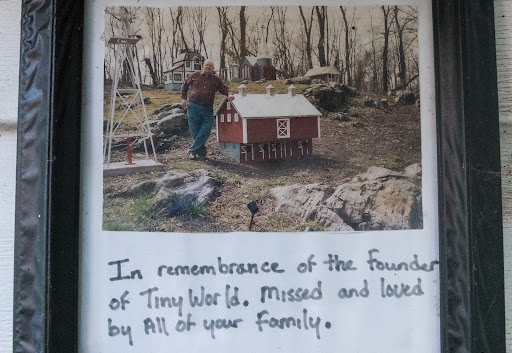 In remembrance of the founder
of Tiny World. Missed and loved
by All of your family.